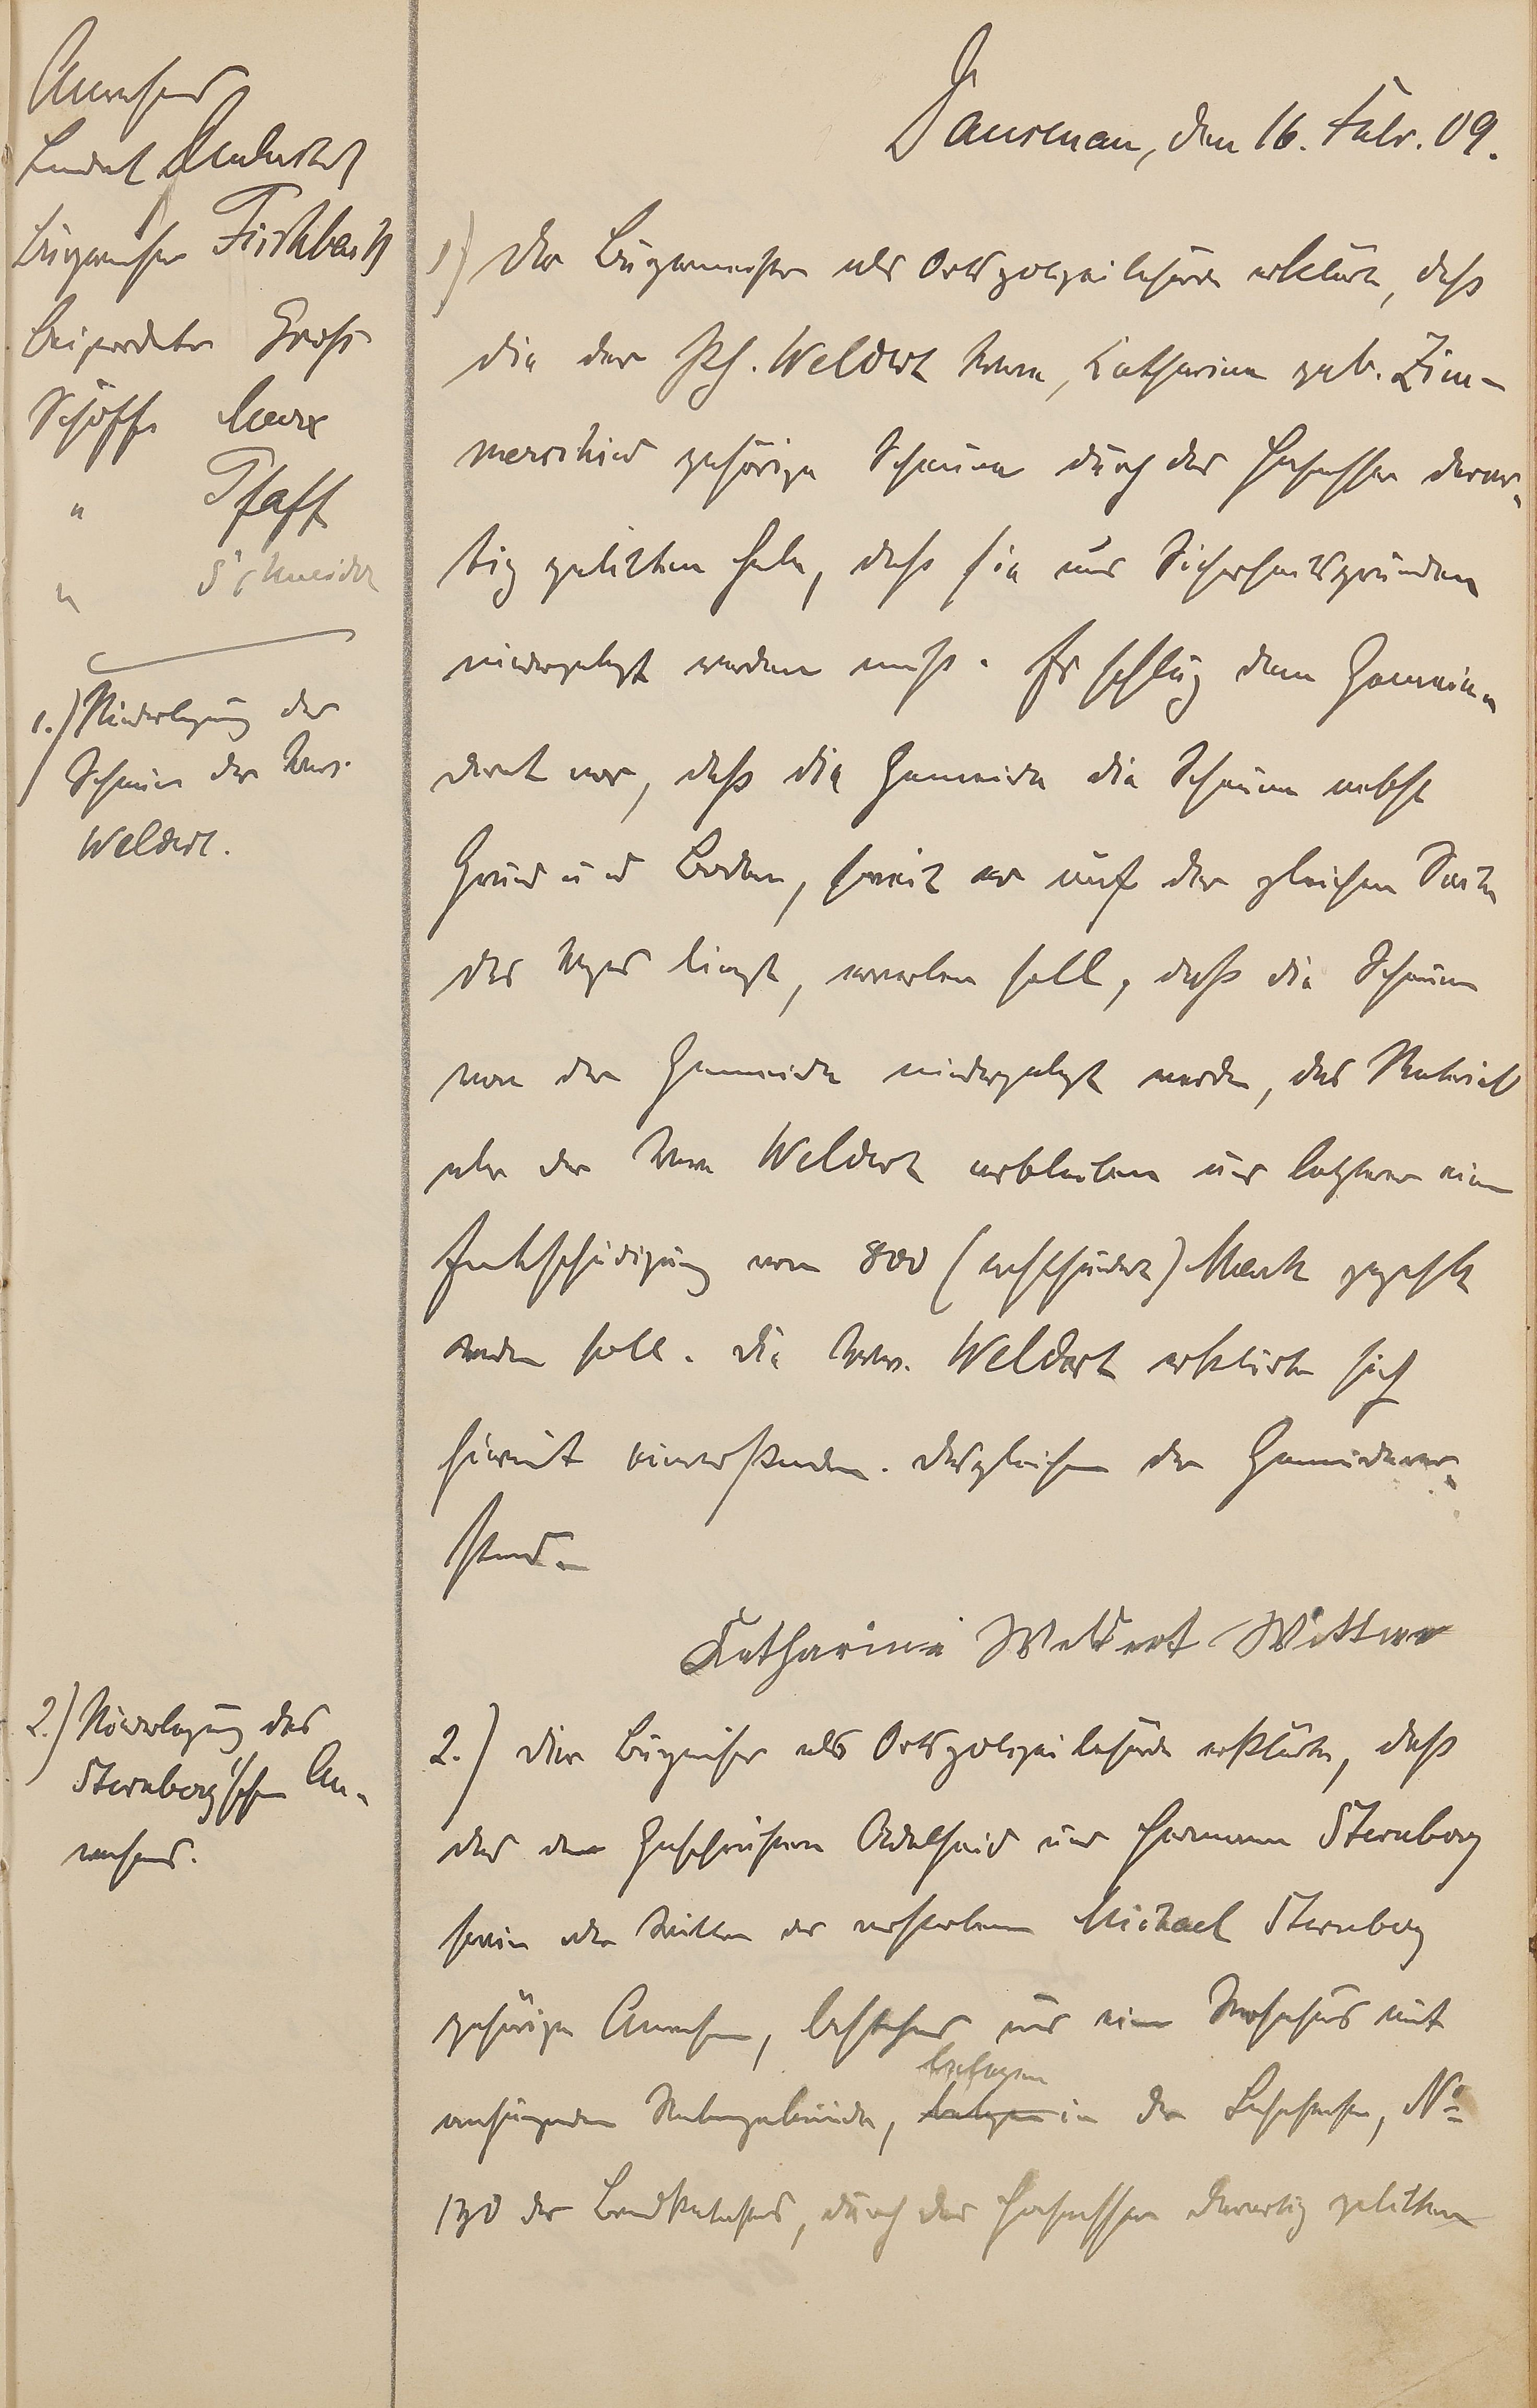 Anwesend
Landrat Duderstadt
Bürgermeister Fischbach
Beigeordneter Groß
Schöffe Marx
" Pfaff
" Schneider
1.) Niederlegung der
Scheune der Wwe.
Weldert.
2.) Niederlegung des
Sternberg'schen An-
wesens.
Dausenau, den 16. Febr. 09.
1) Der Bürgermeister als Ortspolizeibehörde erklärte, daß
die der Ph. Weldert Wwe, Katharina geb. Zim-
merschied gehörige Scheune durch das Hochwasser derar-
tig gelitten habe, daß sie aus Sicherheitsgründen
niedergelegt werden muß. Er schlug dem Gemein-
derat vor, daß die Gemeinde die Scheune nebst
Grund und Boden, soweit er auf der gleichen Seite
des Weges liegt, erwerben soll, daß die Scheune
von der Gemeinde niedergelegt werde, das Material
aber der Wwe Weldert verbleiben und letzterer eine
Entschädigung von 800 (achthundert) Mark gezahlt
werden soll. Die Wwe. Weldert erklärte sich
hiermit einverstanden. Desgleichen der Gemeindevor-
stand.
Katharina Weldert Wittwe
2.) Der Bürgermeister als Ortspolizeibehörde erklärte, daß
das den Geschwistern Adelheid und Hermann Sternberg
sowie der Witwe des verstorbenen Michael Sternberg
gehörige Anwesen, bestehend aus einem Wohnhaus mit
anhängendem Nebengebäude, belegen in der Lahnstraße, No
170 des Brandkatasters, durch das Hochwasser derartig gelitten